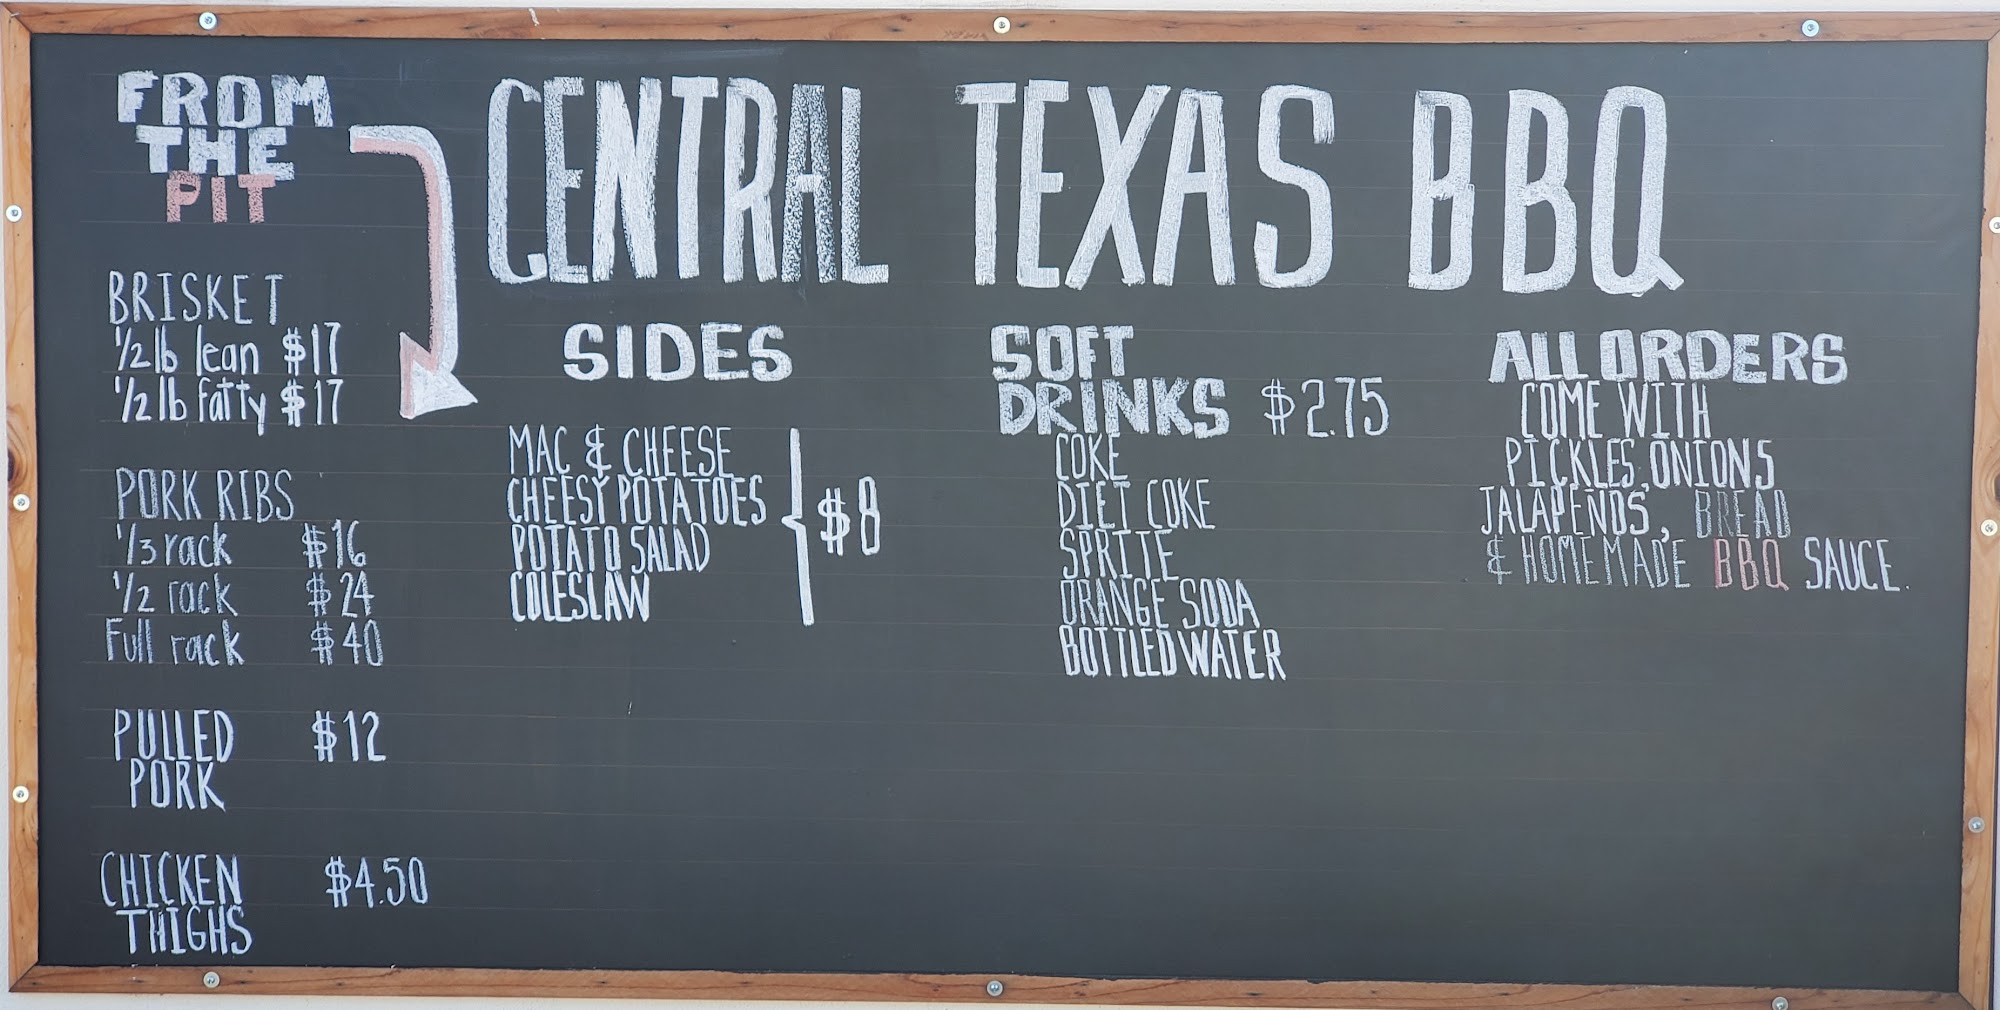 FROM
THE
PIT
CENTRAL TEXAS BBQ
BRISKET
1/2 lb lean $17
1/2 lb fatty $17
PORK RIBS
1/3 rack $16
1/2 rack $24
Full rack $40
PULLED $12
PORK
CHICKEN $4.50
THIGHS
SIDES
MAC & CHEESE
CHEESY POTATOES
POTATO SALAD
COLESLAW
$8
SOFT
DRINKS $2.75
COKE
DIET COKE
SPRITE
ORANGE SODA
BOTTLED WATER
ALL ORDERS
COME WITH
PICKLES, ONIONS
JALAPENOS, BREAD
& HOMEMADE BBQ SAUCE.